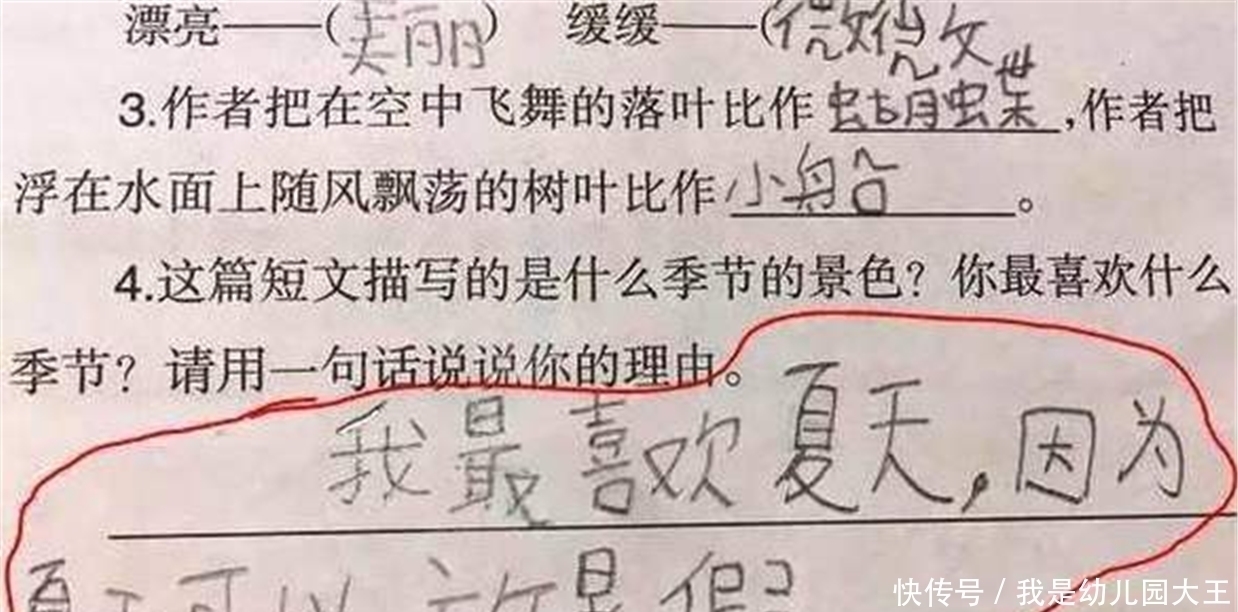 漂亮——(美丽) 缓缓——(微微)
3.作者把在空中飞舞的落叶比作蝴蝶,作者把
浮在水面上随风飘荡的树叶比作小船。
4.这篇短文描写的是什么季节的景色?你最喜欢什么
季节?请用一句话说说你的理由。
我最喜欢夏天,因为
夏天可以放暑假
快传号/我是幼儿园大王